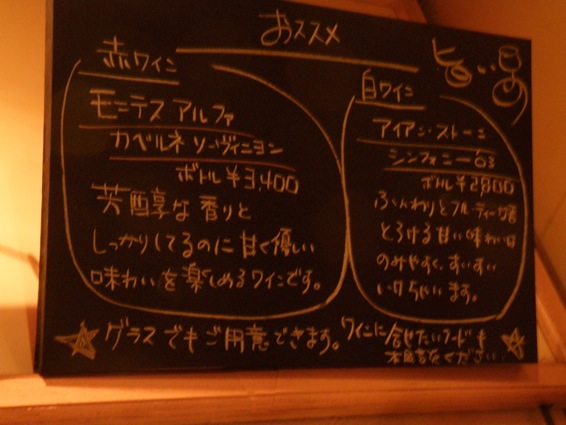 おススメ
赤ワイン
モニテス アルファ
カベルネ ソーヴィニヨン
ボトル ¥3,400
芳醇な香りと
しっかりしてるのに甘く優しい
味わいを楽しめるワインです。
白ワイン
アイアン・ストーン
シンフォニー
ボトル ¥2,800
ふんわりとフルーティーな
とろける甘い味わいは
のみやすく、すいすい
いけちゃいます。
グラスでもご用意できます。
ワインに合せたいフードも
ください